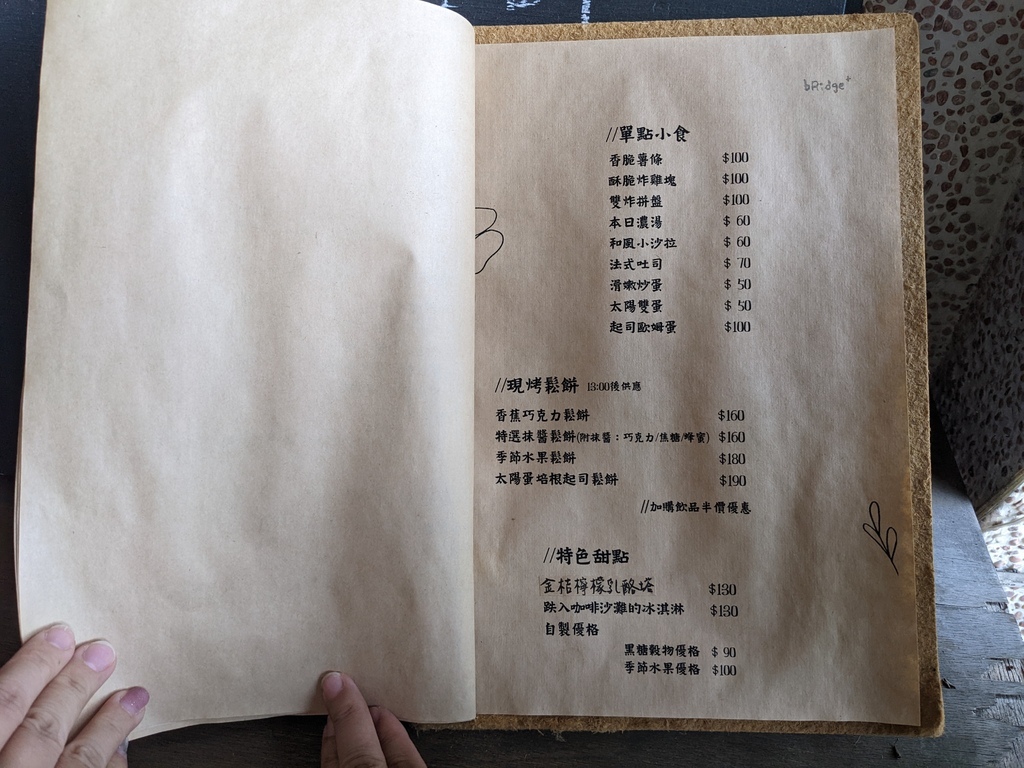 bRidge+
//單點小食
香脆薯條 $100
酥脆炸雞塊 $100
雙炸拼盤 $100
本日濃湯 $ 60
和風小沙拉 $ 60
法式吐司 $ 70
滑嫩炒蛋 $ 50
太陽雙蛋 $ 50
起司歐姆蛋 $100
//現烤鬆餅 13:00後供應
香蕉巧克力鬆餅 $160
特選抹醬鬆餅(附抹醬：巧克力/焦糖/蜂蜜) $160
季節水果鬆餅 $180
太陽蛋培根起司鬆餅 $190
//加購飲品半價優惠
//特色甜點
金桔檸檬乳酪塔 $130
跌入咖啡沙灘的冰淇淋 $130
自製優格
黑糖穀物優格 $ 90
季節水果優格 $100